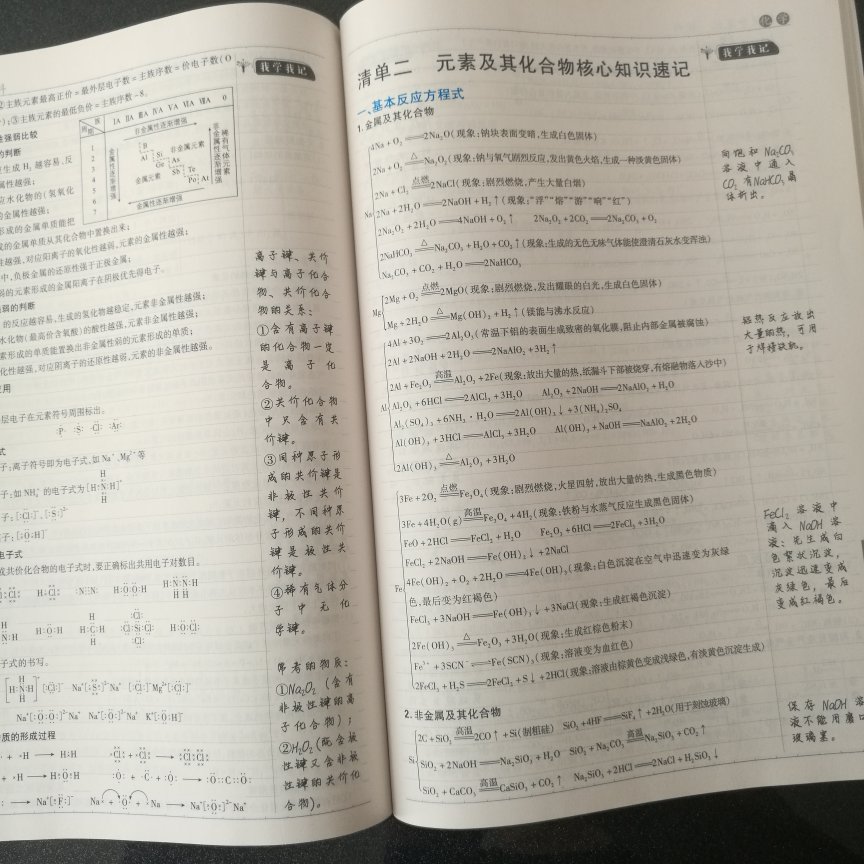 ②主族元素最高正价=最外层电子数=主族序数=价电子数(O
;③主族元素的最低负价=主族序数-8。
性强弱比较
的判断
应生成 H₂ 越容易,反
属性越强;
应水化物的(氢氧化
的金属性越强;
形成的金属单质能把
成的金属单质从其化合物中置换出来;
性越强,对应阳离子的氧化性越弱,元素的金属性越强;
中,负极金属的还原性强于正极金属;
弱的元素形成的金属阳离子在阴极优先得电子。
族
周期
ⅠA ⅡA ⅢA ⅣA ⅤA ⅥA ⅦA 0
非金属性逐渐增强
1
2
3
4
5
6
7
金属性逐渐增强
B
Al Si
Ge As
Sb Te
Po At
非金属元素
金属元素
非金属性逐渐增强
稀有气体元素
金属性逐渐增强
弱的判断
的反应越容易、生成的氢化物越稳定,元素非金属性越强;
水化物(最高价含氧酸)的酸性越强,元素非金属性越强;
素形成的单质能置换出非金属性弱的元素形成的单质;
化性越强,对应阴离子的还原性越弱,元素的非金属性越强。
应用
层电子在元素符号周围标出。
子;离子符号即为电子式,如 Na⁺、Mg²⁺等
子;如 NH₄⁺ 的电子式为
电子式
或共价化合物的电子式时,要正确标出共用电子对数目。
子式的书写。
质的形成过程
我学我记
离子键、共价
键与离子化合
物、共价化合
物的关系:
①含有离子键
的化合物一定
是离子化
合物。
②共价化合物
中只含有共
价键。
③同种原子形
成的共价键是
非极性共价
键,不同种原
子形成的共价
键是极性共
价键。
④稀有气体分
子中无化
学键。
常考的物质:
①Na₂O₂(含有
非极性键的离
子化合物);
②H₂O₂(既含极
性键又含非极
性键的共价化
合物)。
化学
清单二 元素及其化合物核心知识速记
我学我记
一、基本反应方程式
1.金属及其化合物
4Na+O₂══2Na₂O(现象:钠块表面变暗,生成白色固体)
2Na+O₂══△Na₂O₂(现象:钠与氧气剧烈反应,发出黄色火焰,生成一种淡黄色固体)
2Na+Cl₂══点燃2NaCl(现象:剧烈燃烧,产生大量白烟)
Na 2Na+2H₂O══2NaOH+H₂↑(现象:“浮”“熔”“游”“响”“红”)
2Na₂O₂+2H₂O══4NaOH+O₂↑ 2Na₂O₂+2CO₂══2Na₂CO₃+O₂
2NaHCO₃══△Na₂CO₃+H₂O+CO₂↑(现象:生成的无色无味气体能使澄清石灰水变浑浊)
Na₂CO₃+CO₂+H₂O══2NaHCO₃
向饱和 Na₂CO₃
溶液中通入
CO₂有NaHCO₃晶
体析出。
Mg 2Mg+O₂══点燃2MgO(现象:剧烈燃烧,发出耀眼的白光,生成白色固体)
Mg+2H₂O══△Mg(OH)₂+H₂↑(镁能与沸水反应)
4Al+3O₂══2Al₂O₃(常温下铝的表面生成致密的氧化膜,阻止内部金属被腐蚀)
2Al+2NaOH+2H₂O══2NaAlO₂+3H₂↑
2Al+Fe₂O₃══高温Al₂O₃+2Fe(现象:放出大量的热,纸漏斗下部被烧穿,有熔融物落入沙中)
Al Al₂O₃+6HCl══2AlCl₃+3H₂O Al₂O₃+2NaOH══2NaAlO₂+H₂O
Al₂(SO₄)₃+6NH₃·H₂O══2Al(OH)₃↓+3(NH₄)₂SO₄
Al(OH)₃+3HCl══AlCl₃+3H₂O Al(OH)₃+NaOH══NaAlO₂+2H₂O
2Al(OH)₃══△Al₂O₃+3H₂O
铝热反应放出
大量的热,可用
于焊接铁轨。
3Fe+2O₂══点燃Fe₃O₄(现象:剧烈燃烧,火星四射,放出大量的热,生成黑色物质)
3Fe+4H₂O(g)══高温Fe₃O₄+4H₂(现象:铁粉与水蒸气反应生成黑色固体)
FeO+2HCl══FeCl₂+H₂O Fe₂O₃+6HCl══2FeCl₃+3H₂O
FeCl₂+2NaOH══Fe(OH)₂↓+2NaCl
Fe 4Fe(OH)₂+O₂+2H₂O══4Fe(OH)₃(现象:白色沉淀在空气中迅速变为灰绿
色,最后变为红褐色)
FeCl₃+3NaOH══Fe(OH)₃↓+3NaCl(现象:生成红褐色沉淀)
2Fe(OH)₃══△Fe₂O₃+3H₂O(现象:生成红棕色粉末)
Fe³⁺+3SCN⁻══Fe(SCN)₃(现象:溶液变为血红色)
2FeCl₃+H₂S══2FeCl₂+S↓+2HCl(现象:溶液由棕黄色变成浅绿色,有淡黄色沉淀生成)
FeCl₂溶液中
滴入 NaOH 溶
液:先生成白
色絮状沉淀,
沉淀迅速变成
灰绿色,最后
变成红褐色。
2.非金属及其化合物
2C+SiO₂══高温2CO↑+Si(制粗硅) SiO₂+4HF══SiF₄↑+2H₂O(用于刻蚀玻璃)
Si SiO₂+2NaOH══Na₂SiO₃+H₂O SiO₂+Na₂CO₃══高温Na₂SiO₃+CO₂↑
SiO₂+CaCO₃══高温CaSiO₃+CO₂↑ Na₂SiO₃+2HCl══2NaCl+H₂SiO₃↓
保存 NaOH 溶
液不能用磨口
玻璃塞。